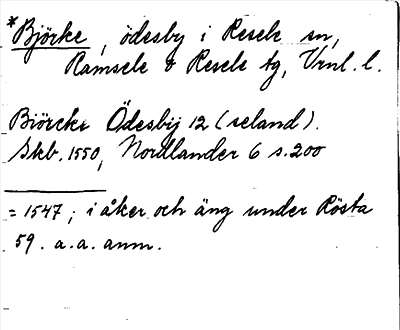 *Björke, ödesby i Resele sn,
Ramsele & Resele tg, Vnl. l.
Biörcke Ödesbij 12 (seland).
Skb. 1550, Nordlander 6 s. 200
= 1547; i åker och äng under Rösta
59. a.a. anm.